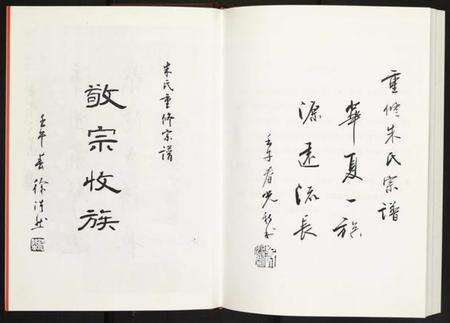 重修朱氏宗譜
華夏一族
源遠流長
壬午春
朱氏重修宗譜
敬宗收族
壬午春徐